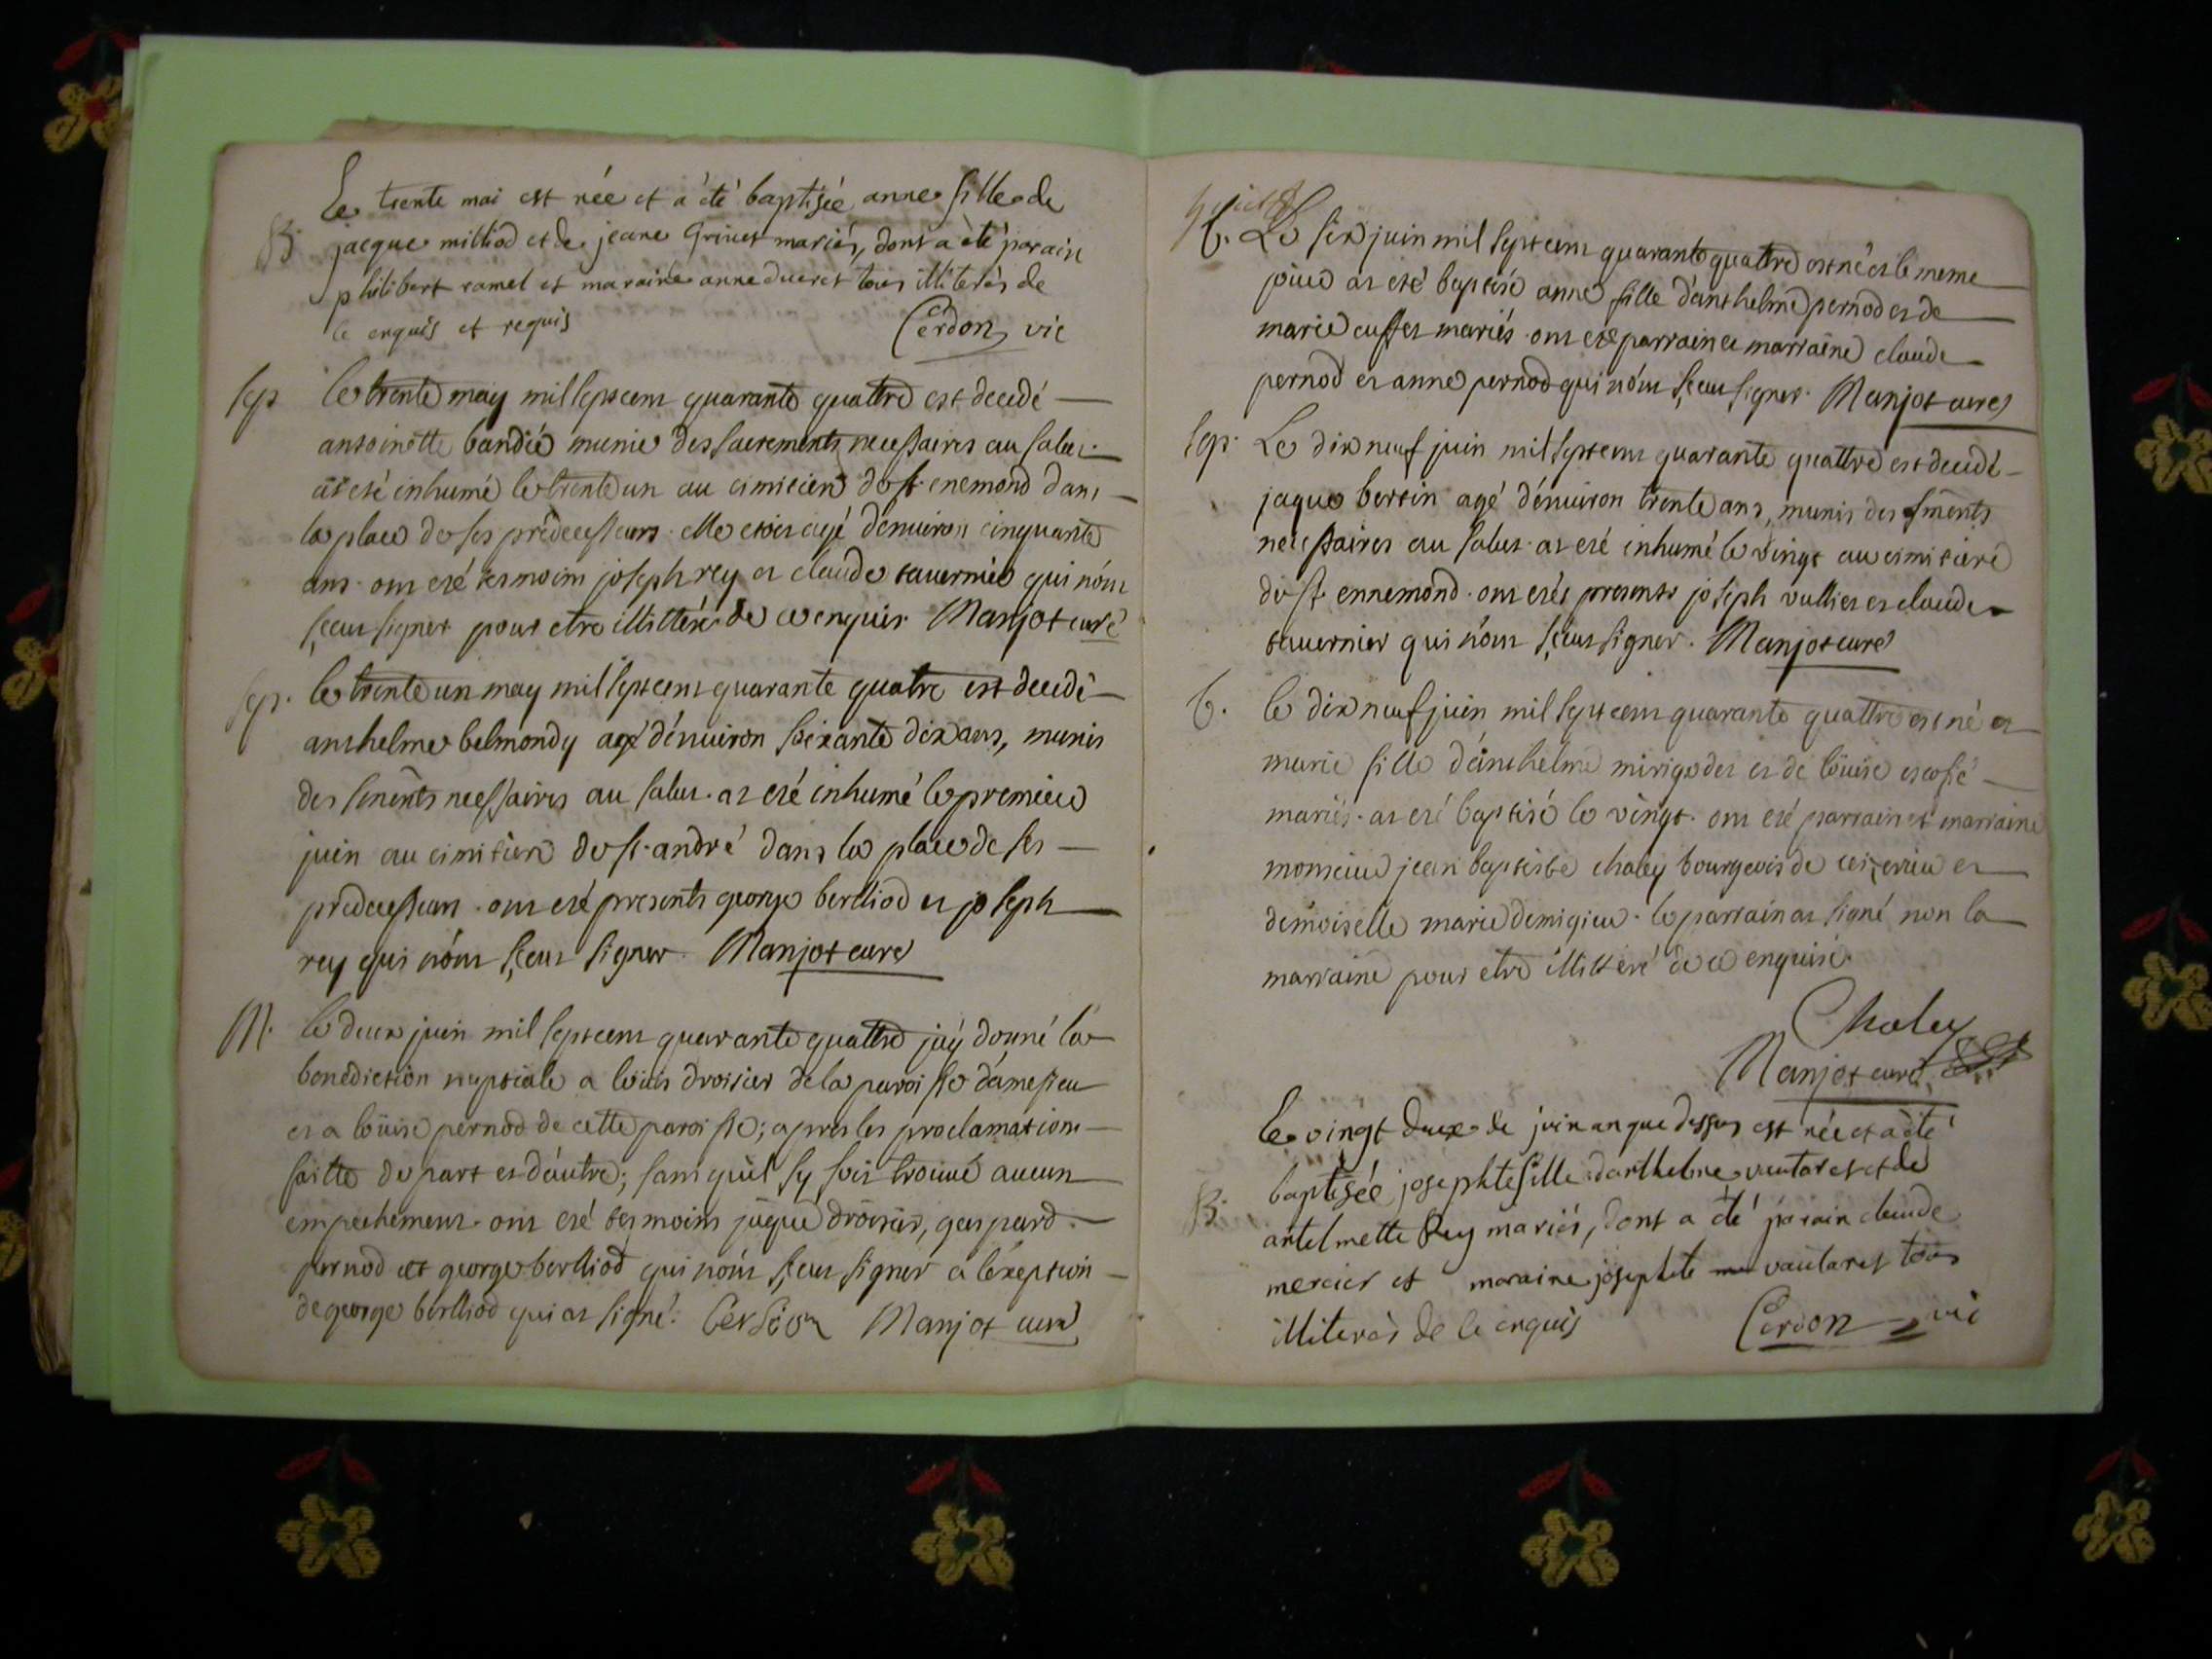 Le trente mai est née et a été baptisée anne fille de
B. jacque milliod et de jeane Grinet mariés, dont a été parain
philibert ramel et maraine anne ducret tous illiterés de
ce enquis et requis Cerdon vic
sep. le trente may mil sept cent quarante quattre est decedé
antoinette bandié munie des sacrements necessaires au salut.
at eté inhumé le trente un au cimitiere de st. enemond dans
la place de ses prédecesseurs. elle etoit agé d'enuiron cinquante
ans. ont eté temoins joseph rey et claude tauernier qui n'ont
sceut signer pour etre illitteré de ce enquis. Manjot curé
sep. le trente un may mil sept cent quarante quatre est decedé
anthelme belmondy agé d'enuiron soixante dix ans, munis
des smênts necessaires au salut. at eté inhumé le premier
juin au cimitiere de st. andré dans la place de ses
prédecesseurs. ont eté presents george berlliod et joseph
rey qui n'ont sceut signer. Manjot curé
M. le deux juin mil sept cent quarante quattre j'aÿ donné la
benediction nuptiale a loüis droisier de la paroisse d'ameisieu
et a loüise pernod de cette paroisse; apres les proclamations
faitte de part et d'autre; sans qu'il sy soit trouué aucun
empechement. ont eté temoins jaque droisier, gaspard
pernod et george berlliod qui n'ont sceut signer à l'éxeption
de george berlliod qui at signé. Manjot curé
b. Le six juin mil sept cent quarante quattre est né et le meme
jour at eté baptisé anne fille d'anthelme pernod et de
marie cusset mariés. ont eté parrain et marraine claude
pernod et anne pernod qui n'ont sceut signer. Manjot curé
sep. Le dix neuf juin mil sept cent quarante quattre est decedé
jaque bertin agé d'enuiron trente ans, munis des smênts
necessaires au salut. at eté inhumé le vingt au cimitiere
de st. ennemond. ont etés presents joseph vullier et claude
tauernier qui n'ont sceut signer. Manjot curé
b. le dix neuf juin mil sept cent quarante quattre est né et
marie fille d'anthelme mirigodet et de loüise escofié
mariés. at eté baptisé le vingt. ont eté parrain et marraine
monsieur jean baptiste chaley bourgeois de ceizerieu et
demoiselle marie demigieu. le parrain at signé non la
marraine pour etre illitteré de ce enquise.
Chaley
Manjot curé
Le vingt deux de juin an que dessus est née et a été
baptisée josephte fille d'anthelme vautaret et de
B. antelmette Rey mariés, dont a été parain claude
mercier et maraine josephte vautaret tous
illiterés de ce enquis Cerdon vic